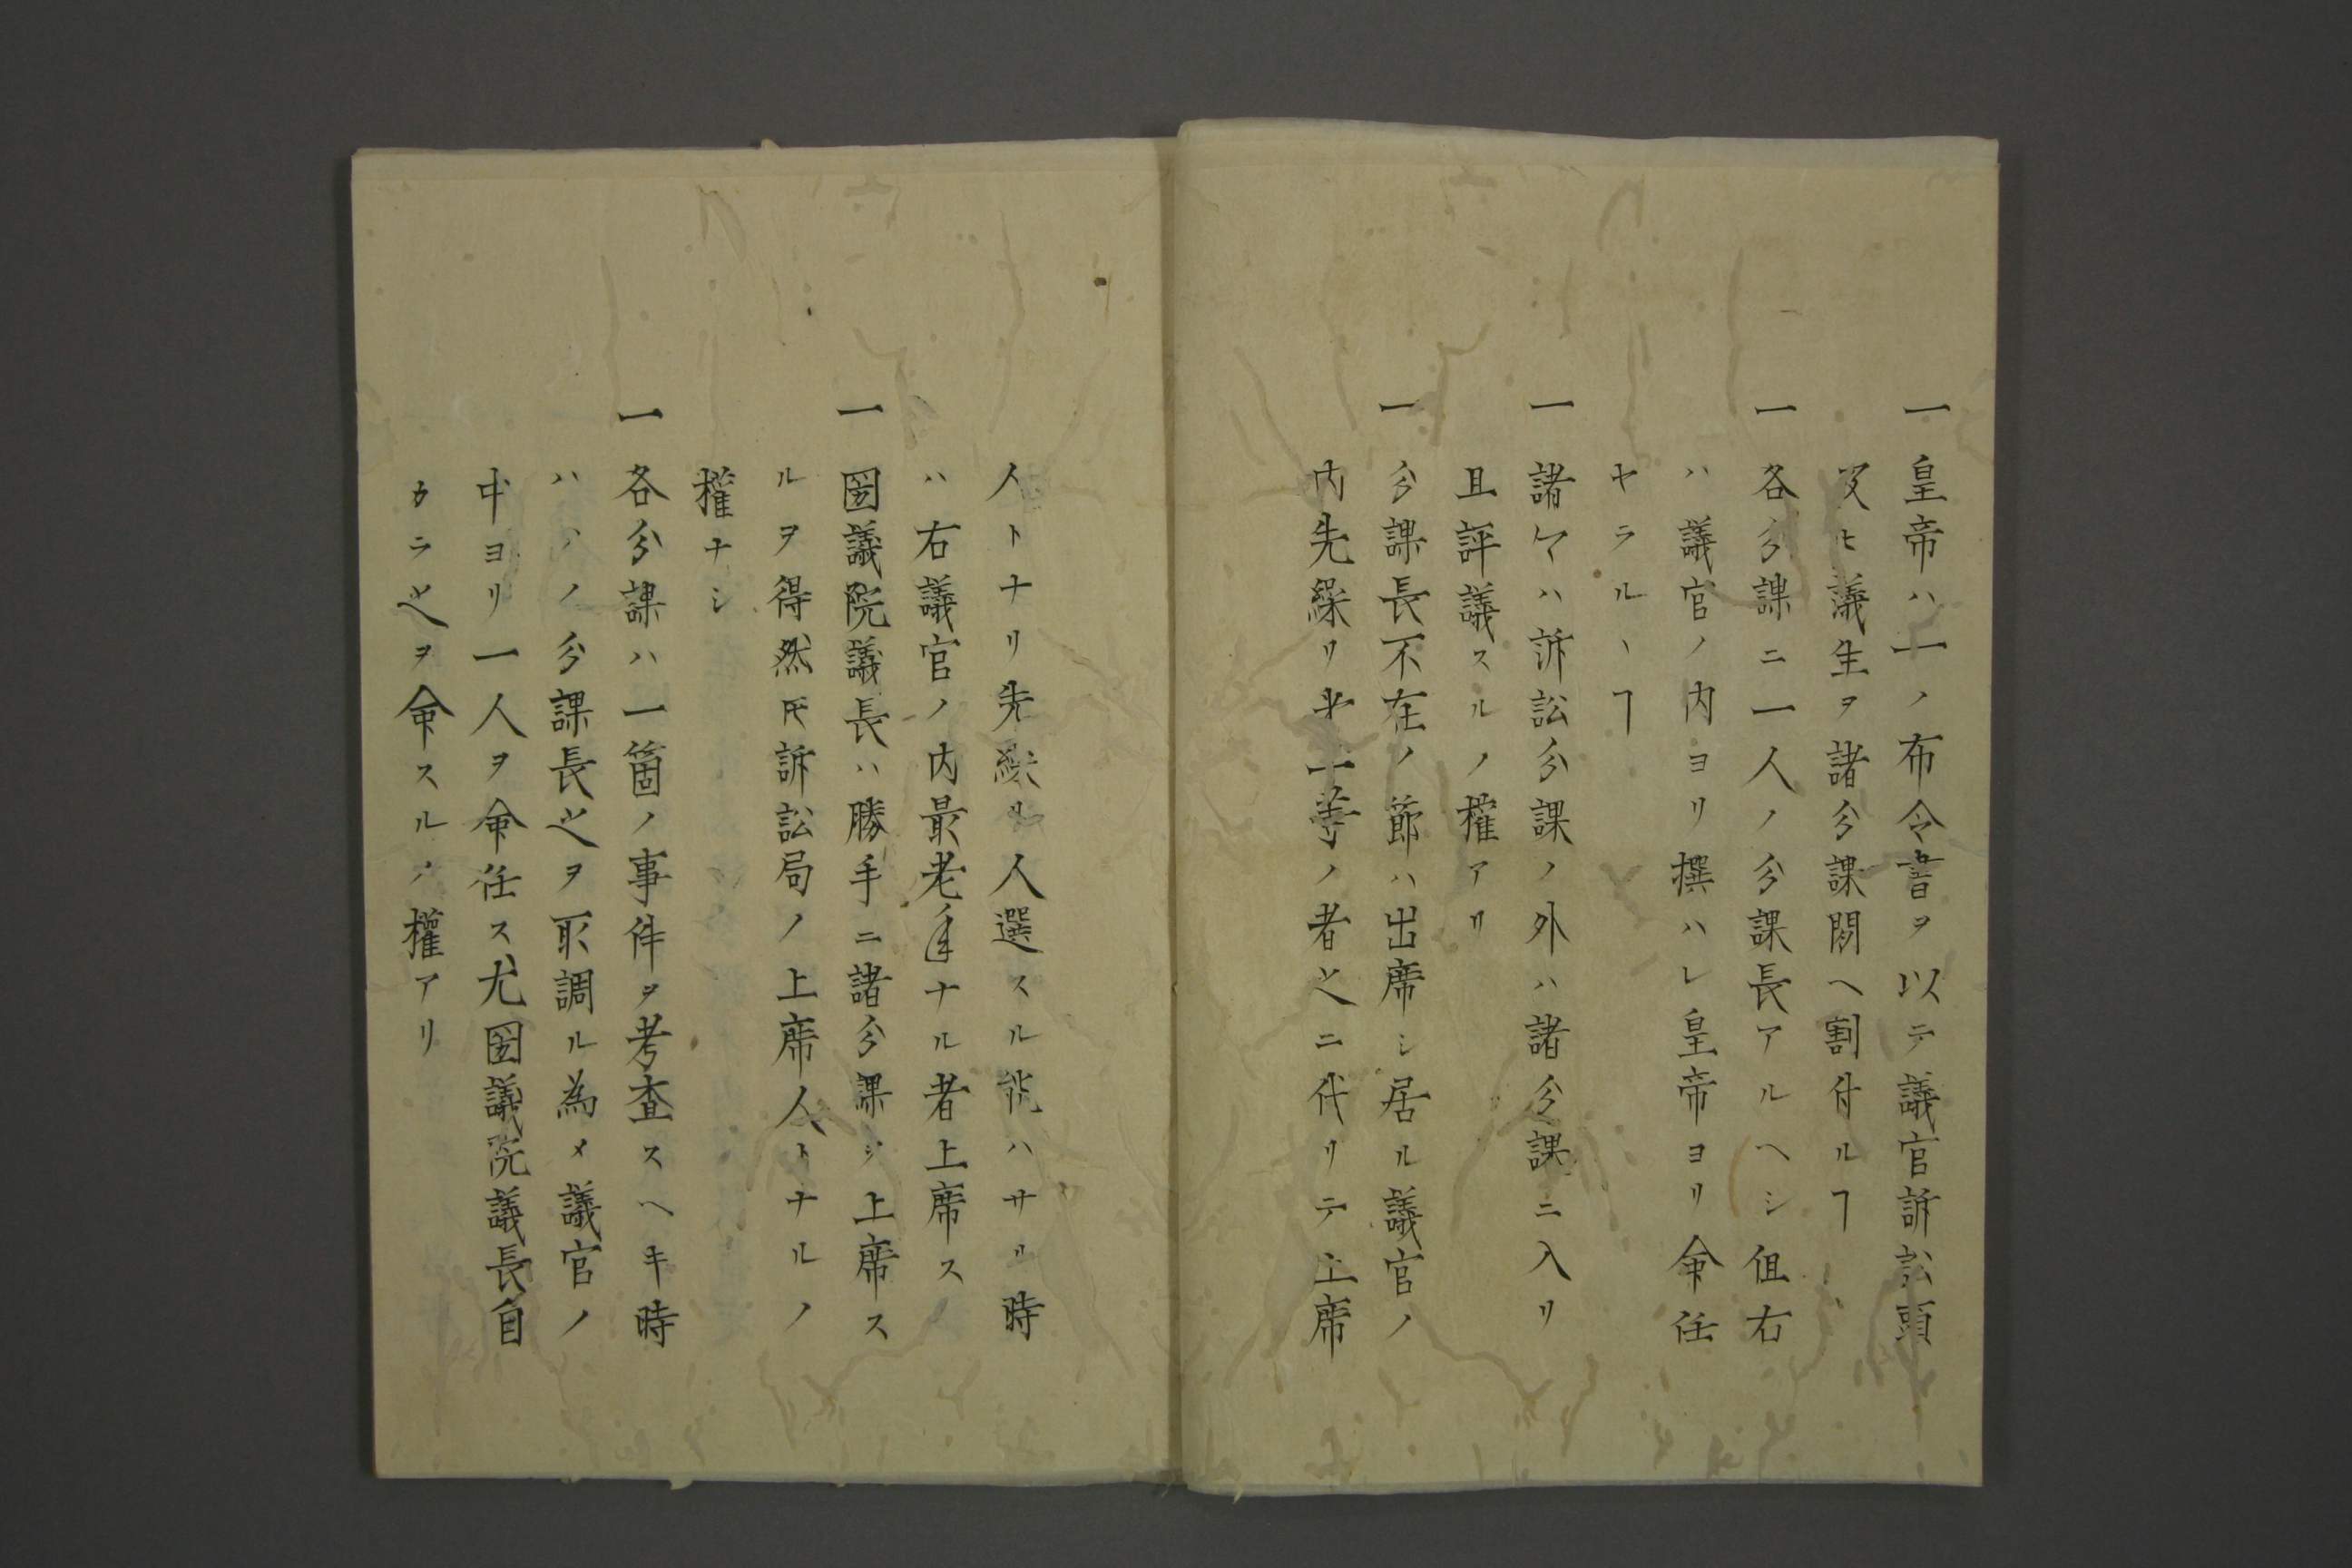 一皇帝ハ一ノ布令書ヲ以テ議官訴訟頭
及ヒ議生ヲ諸分課間ヘ割付ルヿ
一各分課ニ一人ノ分課長アルヘシ但右
ハ議官ノ内ヨリ撰ハレ皇帝ヨリ命任
セラルヽヿ
一諸ケハ訴訟分課ノ外ハ諸分課ニ入リ
且評議スルノ権アリ
一分課長不在ノ節ハ出席シ居ル議官ノ
内先繰リ第一等ノ者之ニ代リテ上席
人トナリ先繰リ人選スル能ハサル時
ハ右議官ノ内最老年ナル者上席ス
一国議院議長ハ勝手ニ諸分課ニ上席ス
ルヲ得然𪜈訴訟局ノ上席人トナルノ
権ナシ
一各分課ハ一箇ノ事件ヲ考査スヘキ時
ハソノ分課長之ヲ取調ル為メ議官ノ
中ヨリ一人ヲ命任ス尤国議院議長自
カラ之ヲ命スルノ権アリ